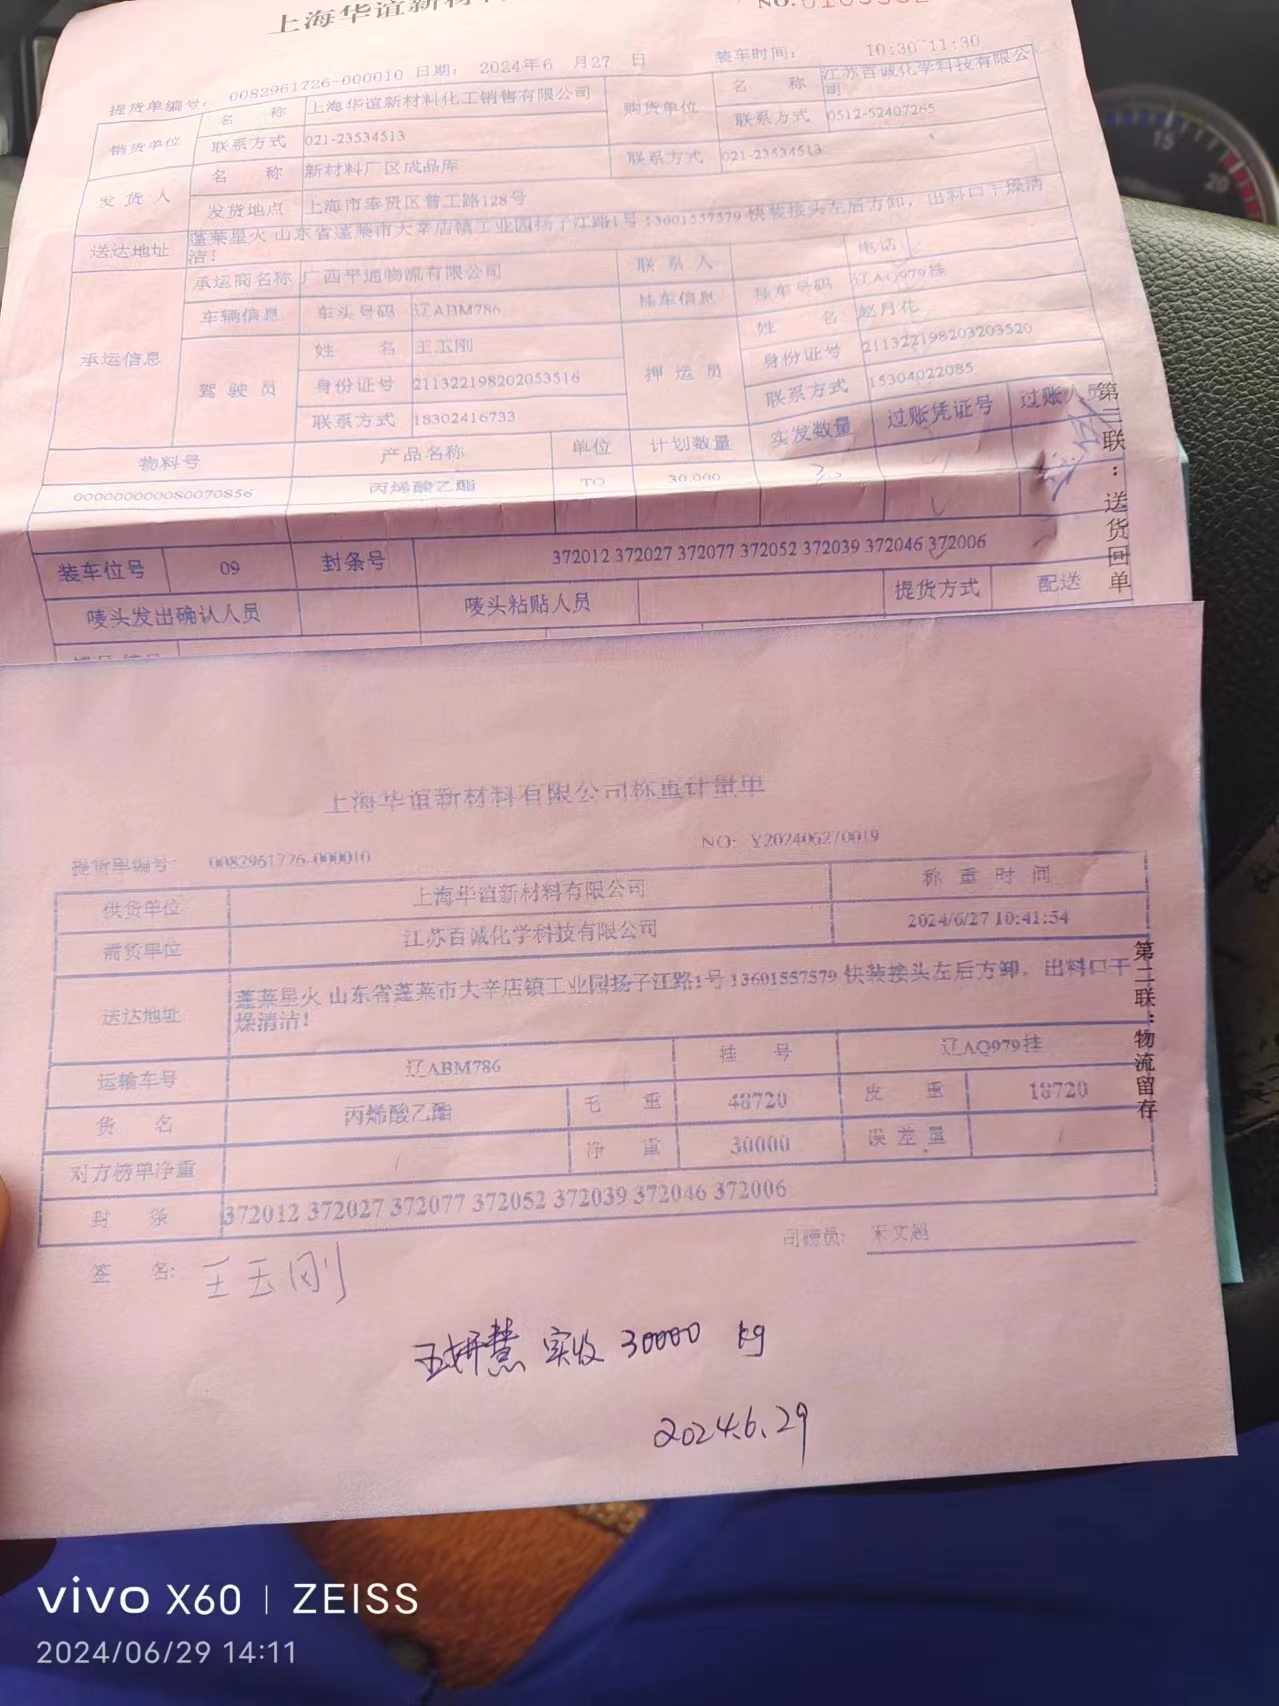 上海华谊新材料
NO.
提货单编号: 0082961726-000010 日期: 2024年6 月27 日 装车时间: 10:30~11:30
销货单位 名 称 上海华谊新材料化工销售有限公司 购货单位 名 称 江苏百诚化学科技有限公司
联系方式 021-23534513 联系方式 0512-52407265
发 货 人 名 称 新材料厂区成品库 联系方式 021-23534513
发货地点 上海市奉贤区普工路128号
送达地址 蓬莱星火 山东省蓬莱市大辛店镇工业园扬子江路1号 13601557579 快装接头左后方卸，出料口干燥清
洁！
承运信息 承运商名称 广西平通物流有限公司 联 系 人 电话
车辆信息 车头号码 辽ABM786 挂车信息 挂车号码 辽AQ979挂
驾 驶 员 姓 名 王玉刚 押 运 员 姓 名 赵月花
身份证号 211322198202053516 身份证号 211322198203203520
联系方式 18302416733 联系方式 15304022085
物料号 产品名称 单位 计划数量 实发数量 过账凭证号 过账人员
000000000080070856 丙烯酸乙酯 TO 30.000
装车位号 09 封条号 372012 372027 372077 372052 372039 372046 372006
唛头发出确认人员 唛头粘贴人员 提货方式 配送
第二联：送货回单
上海华谊新材料有限公司称重计量单
提货单编号: 0082961726-000010 NO: Y202406270019
供货单位 上海华谊新材料有限公司 称 重 时 间
需货单位 江苏百诚化学科技有限公司 2024/6/27 10:41:54
送达地址 蓬莱星火 山东省蓬莱市大辛店镇工业园扬子江路1号 13601557579 快装接头左后方卸，出料口干
燥清洁！
运输车号 辽ABM786 挂 号 辽AQ979挂
货 名 丙烯酸乙酯 毛 重 48720 皮 重 18720
对方磅单净重 / 净 重 30000 误 差 量 /
封 条 372012 372027 372077 372052 372039 372046 372006
签 名: 王玉刚 司磅员: 宋文超
第二联：物流留存
实收 30000 kg
2024.6.29
vivo X60 | ZEISS
2024/06/29 14:11